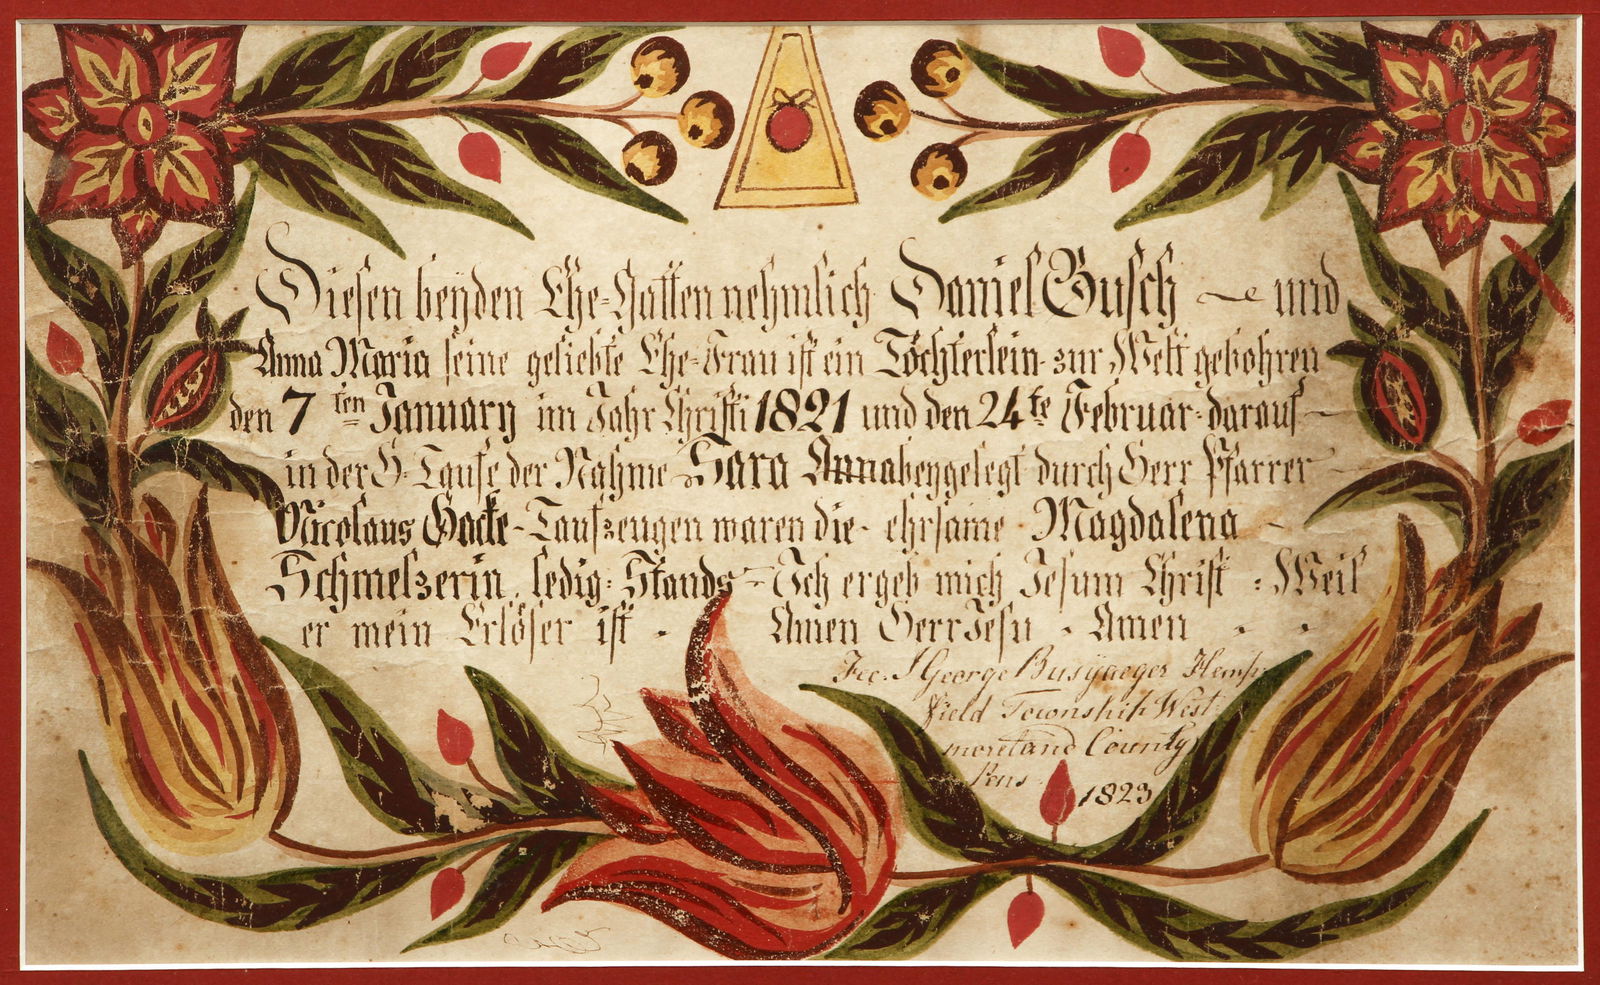 Diesen beyden Ehe-Gatten nehmlich Daniel Busch und
Anna Maria seine geliebte Ehe-Frau ist ein Töchterlein zur Welt gebohren
den 7ten January im Jahr Christi 1821 und den 24te Februar darauf
in der H. Taufe der Nahme Sara Anna beygelegt durch Herr Pfarrer
Nicolaus Hacke-Taufzeugen waren die ehrsame Magdalena
Schmelzerin, ledig: Stands Ich ergeb mich Jesum Christ: Weil
er mein Erlöser ist. Amen Herr Jesu. Amen
Fec. George Busyaeger Hemp
field Township West
moreland County
Pens
1823